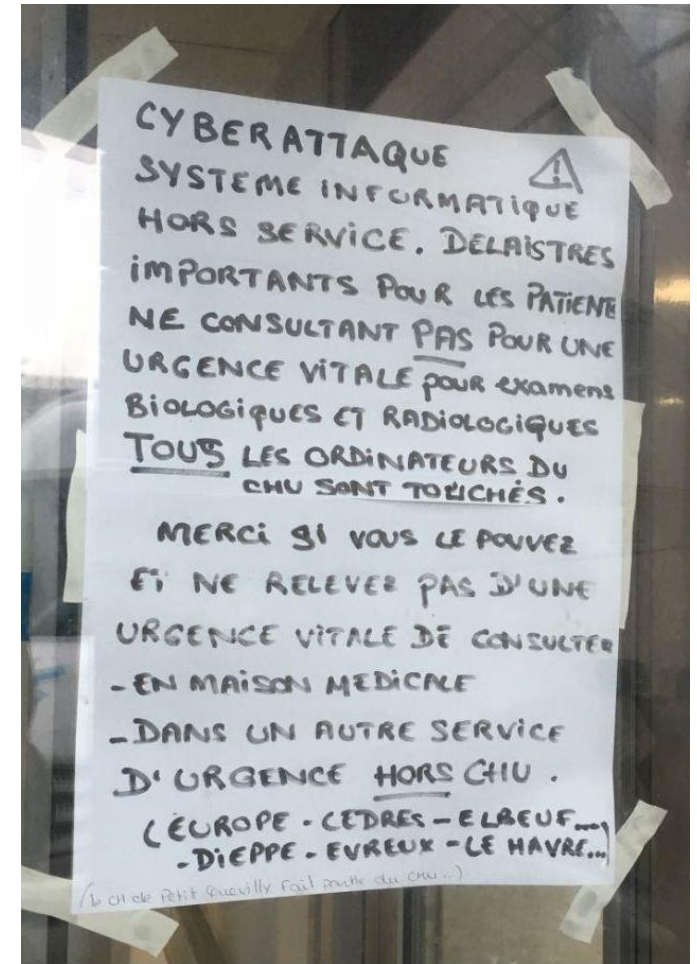 CYBERATTAQUE
SYSTEME INFORMATIQUE
HORS SERVICE. DELAIS TRES
IMPORTANTS POUR LES PATIENTS
NE CONSULTANT PAS POUR UNE
URGENCE VITALE pour examens
BIOLOGIQUES ET RADIOLOGIQUES
TOUS LES ORDINATEURS DU
CHU SONT TOUCHÉS.
MERCI SI VOUS LE POUVEZ
ET NE RELEVEZ PAS D'UNE
URGENCE VITALE DE CONSULTER
- EN MAISON MEDICALE
- DANS UN AUTRE SERVICE
D'URGENCE HORS CHU.
(EUROPE - CEDRES - ELBEUF...
- DIEPPE - EVREUX - LE HAVRE...)
(le CH de Petit Quevilly fait partie du CHU...)